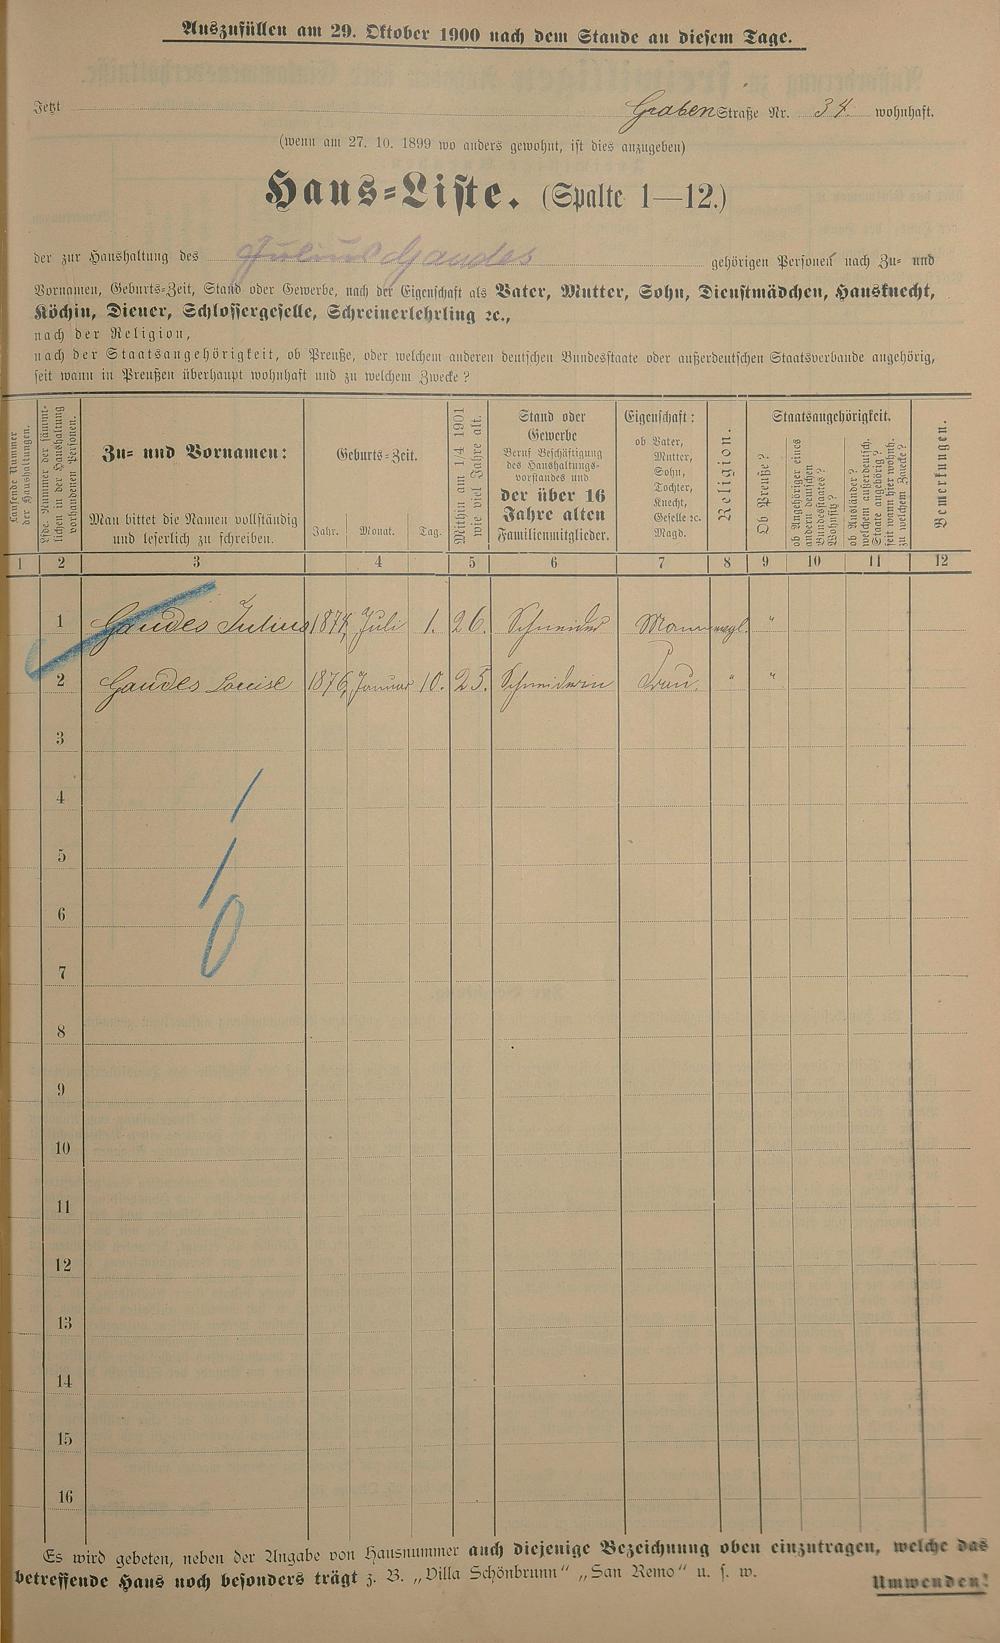 Auszufüllen am 29. Oktober 1900 nach dem Stande an diesem Tage.
Jetzt Graben Straße Nr. 34. wohnhaft.
(wenn am 27. 10. 1899 wo anders gewohnt, ist dies anzugeben)
Haus-Liste. (Spalte 1—12.)
der zur Haushaltung des Julius Gandes gehörigen Personen nach Zu- und
Vornamen, Geburts-Zeit, Stand oder Gewerbe, nach der Eigenschaft als Vater, Mutter, Sohn, Dienstmädchen, Hausknecht,
Köchin, Diener, Schlossergeselle, Schreinerlehrling ꝛc.,
nach der Religion,
nach der Staatsangehörigkeit, ob Preuße, oder welchem anderen deutschen Bundesstaate oder außerdeutschen Staatsverbande angehörig,
seit wann in Preußen überhaupt wohnhaft und zu welchem Zwecke?
Laufende Nummer
der Haushaltungen.
Lfde. Nummer der sämmt-
lichen in der Haushaltung
vorhandenen Personen.
Zu- und Vornamen:
Man bittet die Namen vollständig
und leserlich zu schreiben.
Geburts-Zeit.
Jahr. Monat. Tag.
Mithin am 1/4 1901
wie viel Jahre alt.
Stand oder
Gewerbe
Beruf Beschäftigung
des Haushaltungs-
vorstandes und
der über 16
Jahre alten
Familienmitglieder.
Eigenschaft:
ob Vater,
Mutter,
Sohn,
Tochter,
Knecht,
Geselle ꝛc.
Magd.
Religion.
Staatsangehörigkeit.
Ob Preuße?
ob Angehöriger eines
andern deutschen
Bundesstaates?
Wohnsitz?
ob Ausländer?
welchem außerdeutsch.
Staate angehörig?
seit wann hier wohnh.
zu welchem Zwecke?
Bemerkungen.
1 2 3 4 5 6 7 8 9 10 11 12
1 Gandes Julius 1874 Juli 1. 26. Schneider Mann evgl. "
2 Gandes Louise 1876 Januar 10. 25. Schneiderin Frau. " "
3
4
5
6
7
8
9
10
11
12
13
14
15
16
Es wird gebeten, neben der Angabe von Hausnummer auch diejenige Bezeichnung oben einzutragen, welche das
betreffende Haus noch besonders trägt z. B. „Villa Schönbrunn" „San Remo" u. s. w.
Umwenden!